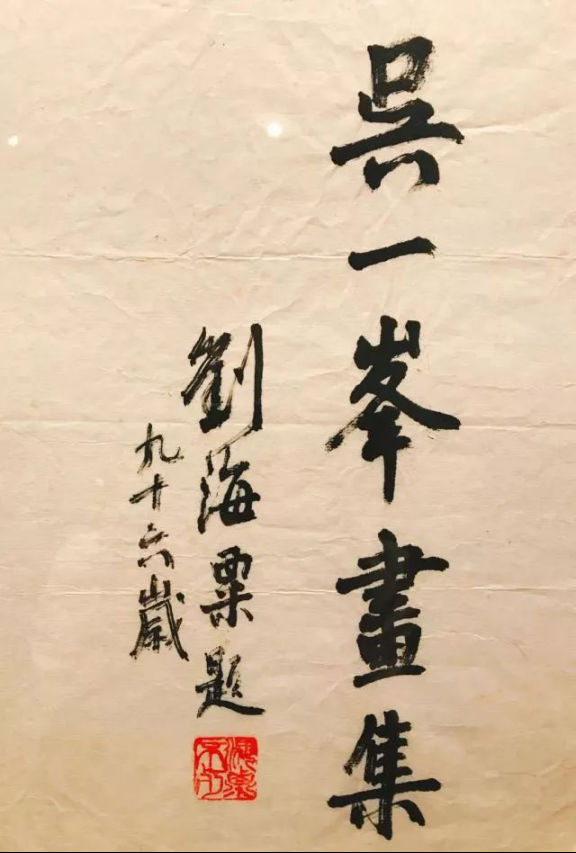 吳一峯畫集
劉海粟題
九十六歲